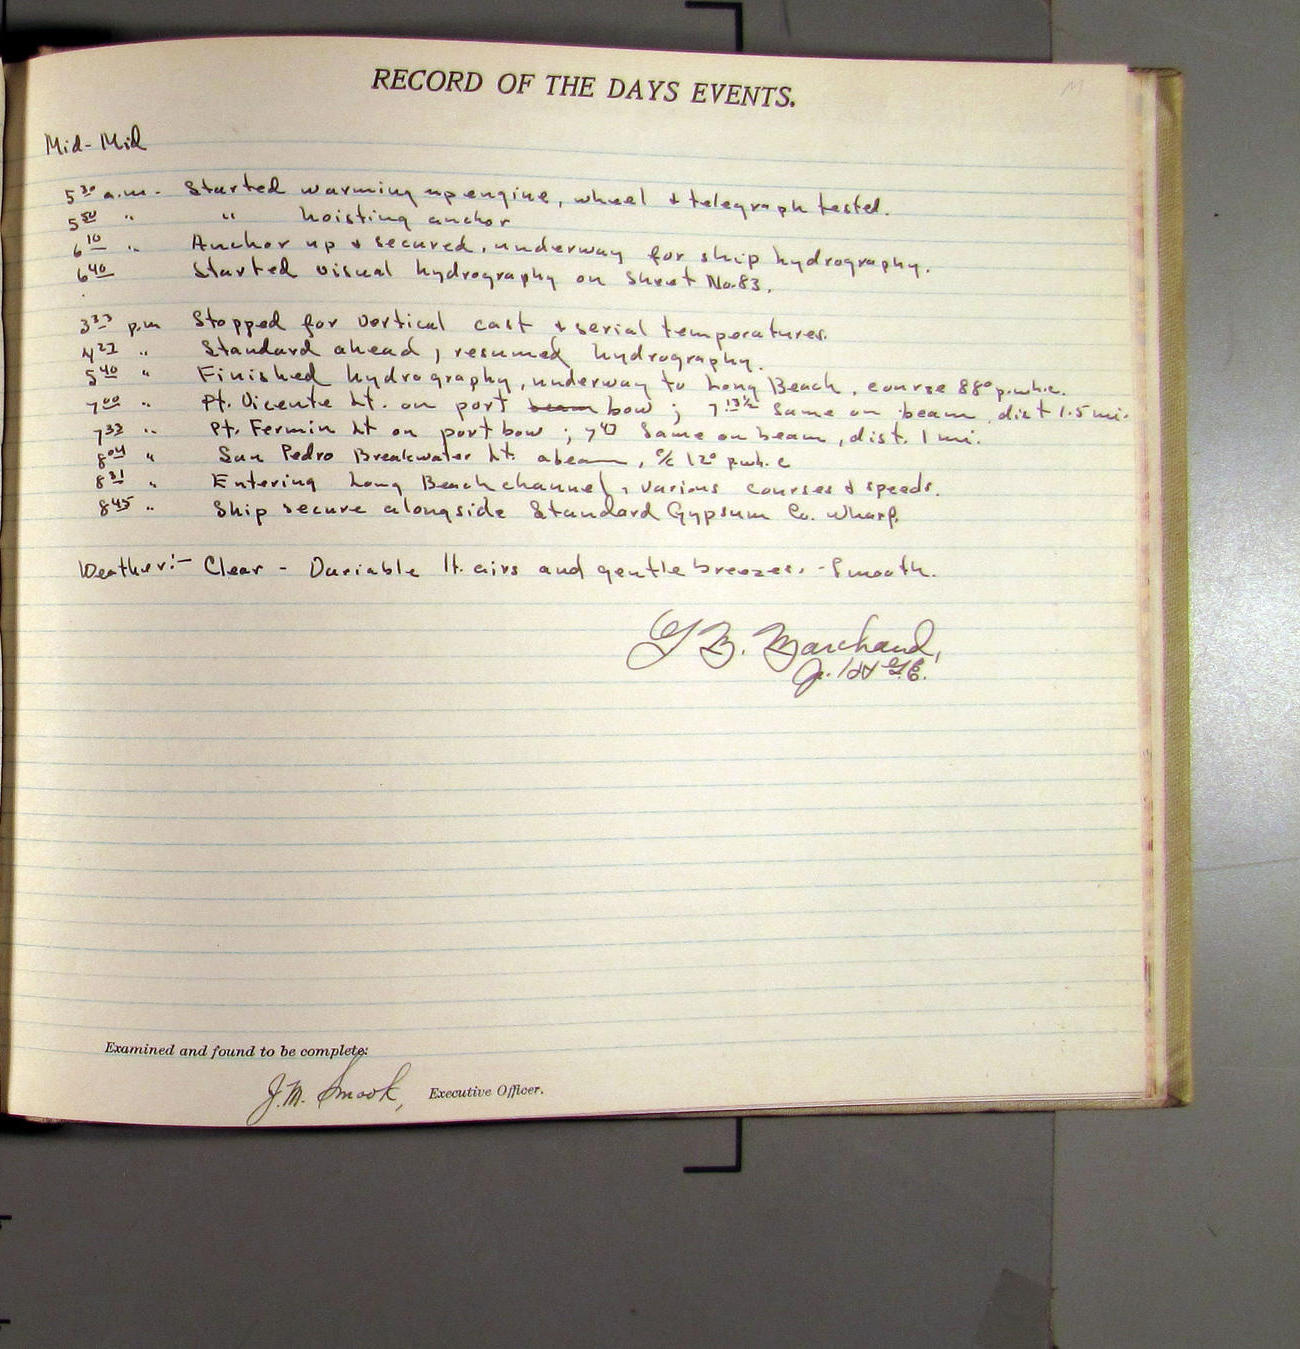 RECORD OF THE DAYS EVENTS.
Mid-Mid
5 30 a.m. - Started warming up engine, wheel & telegraph tested.
5 50 " " hoisting anchor
6 10 " Anchor up & secured, underway for ship hydrography.
6 40 Started visual hydrography on Sheet No. 83.
3 33 p.m Stopped for vertical cast & serial temperatures.
4 27 " Standard ahead, resumed hydrography.
5 40 " Finished hydrography, underway to Long Beach, course 88° p.wh.c.
7 00 " Pt. Vicente Lt. on port beam bow; 7 13½ same on beam, dist 1.5 mi.
7 33 " Pt. Fermin Lt on port bow; 7 47 same on beam, dist. 1 mi.
8 04 " San Pedro Breakwater Lt. abeam, c/c 12° p.wh.c
8 31 " Entering Long Beach channel, various courses & speeds.
8 45 " Ship secure alongside Standard Gypsum Co. wharf.
Weather:- Clear - Variable lt. airs and gentle breezes. - Smooth.
Marchand,
Examined and found to be complete:
J.M. Smook, Executive Officer.